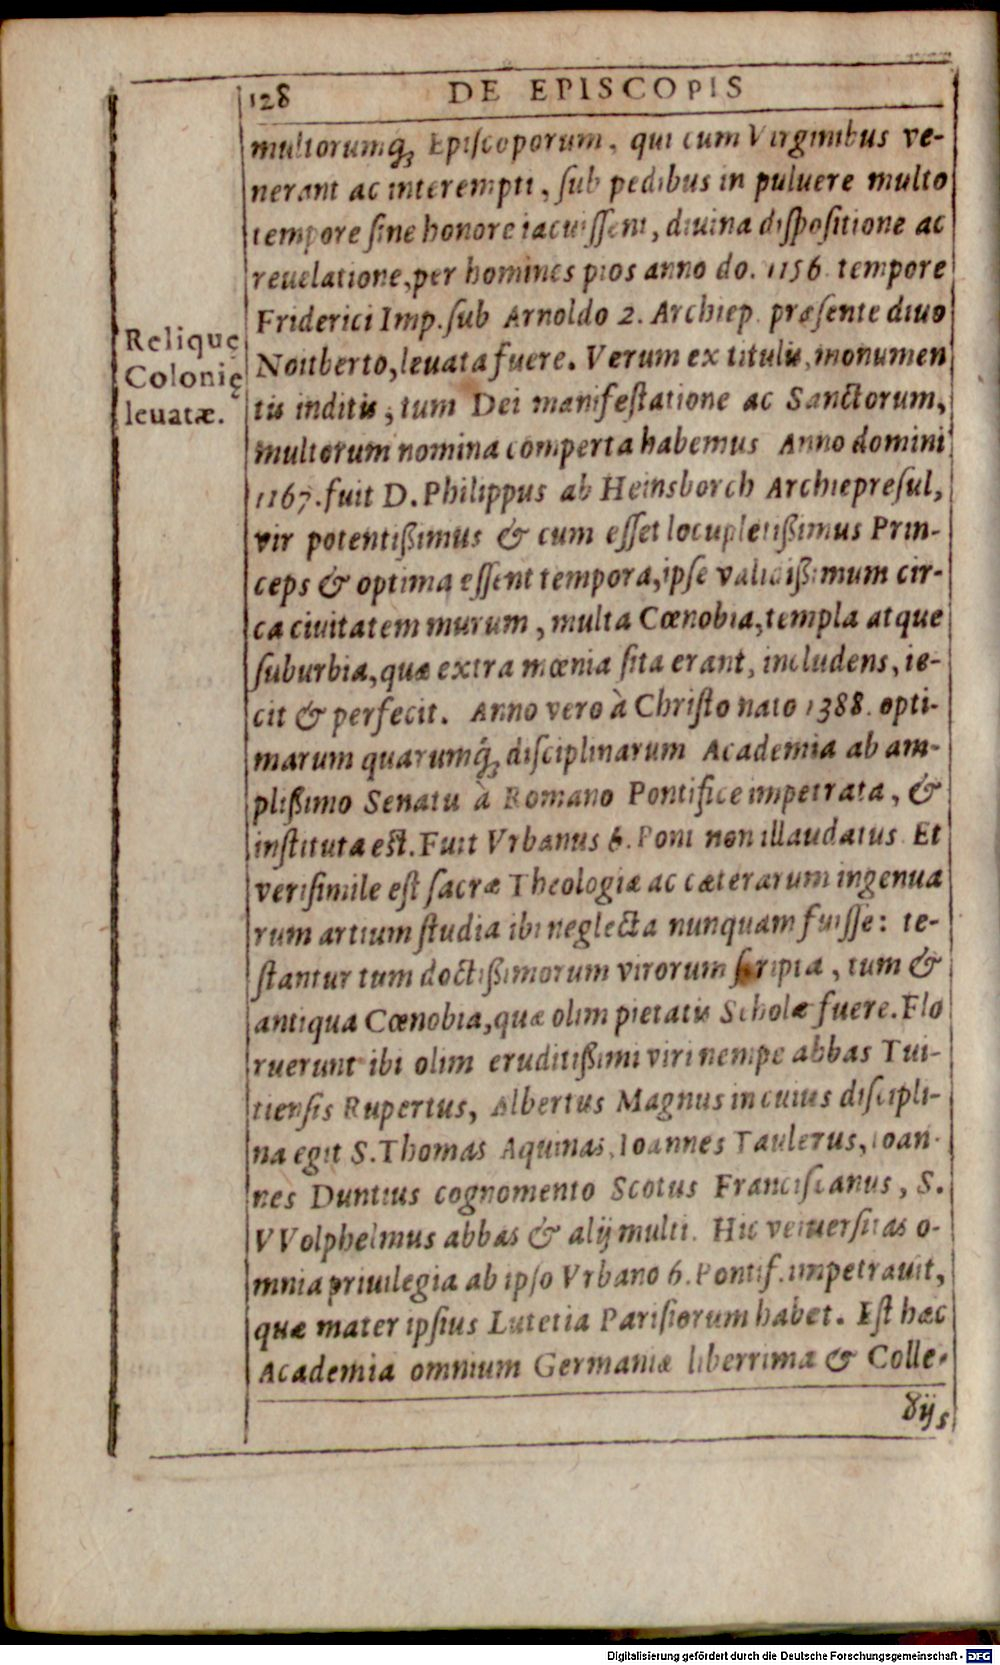 128 DE EPISCOPIS
multorumq́; Episcoporum, qui cum Virginibus ve-
nerant ac interempti, sub pedibus in puluere multo
tempore sine honore iacuissent, diuina dispositione ac
reuelatione, per homines pios anno do. 1156. tempore
Friderici Imp. sub Arnoldo 2. Archiep. præsente diuo
Nortberto, leuata fuere. Verum ex titulis, monumen
tis inditis, tum Dei manifestatione ac Sanctorum,
multorum nomina comperta habemus Anno domini
1167. fuit D. Philippus ab Heinsborch Archiepresul,
vir potentißimus & cum esset locupletißimus Prin-
ceps & optima essent tempora, ipse validißimum cir-
ca ciuitatem murum, multa Cœnobia, templa atque
suburbia, quæ extra mœnia sita erant, includens, ie-
cit & perfecit. Anno vero à Christo nato 1388. opti-
marum quarumq́; disciplinarum Academia ab am-
plißimo Senatu à Romano Pontifice impetrata, &
instituta est. Fuit Vrbanus 6. Pont non illaudatus Et
verisimile est sacræ Theologiæ ac cæterarum ingenua
rum artium studia ibi neglecta nunquam fuisse: te-
stantur tum doctißimorum virorum scripta, tum &
antiqua Cœnobia, quæ olim pietatis Scholæ fuere. Flo
ruerunt ibi olim eruditißimi viri nempe abbas Tui-
tiensis Rupertus, Albertus Magnus in cuius discipli-
na egit S. Thomas Aquinas, Ioannes Taulerus, Ioan-
nes Duntius cognomento Scotus Franciscanus, S.
VVolphelmus abbas & alij multi. Hic vniuersitas o-
mnia priuilegia ab ipso Vrbano 6. Pontif. impetrauit,
quæ mater ipsius Lutetia Parisiorum habet. Est hæc
Academia omnium Germaniæ liberrima & Colle-
gijs
Reliquę
Colonię
leuatæ.
Digitalisierung gefördert durch die Deutsche Forschungsgemeinschaft - DFG